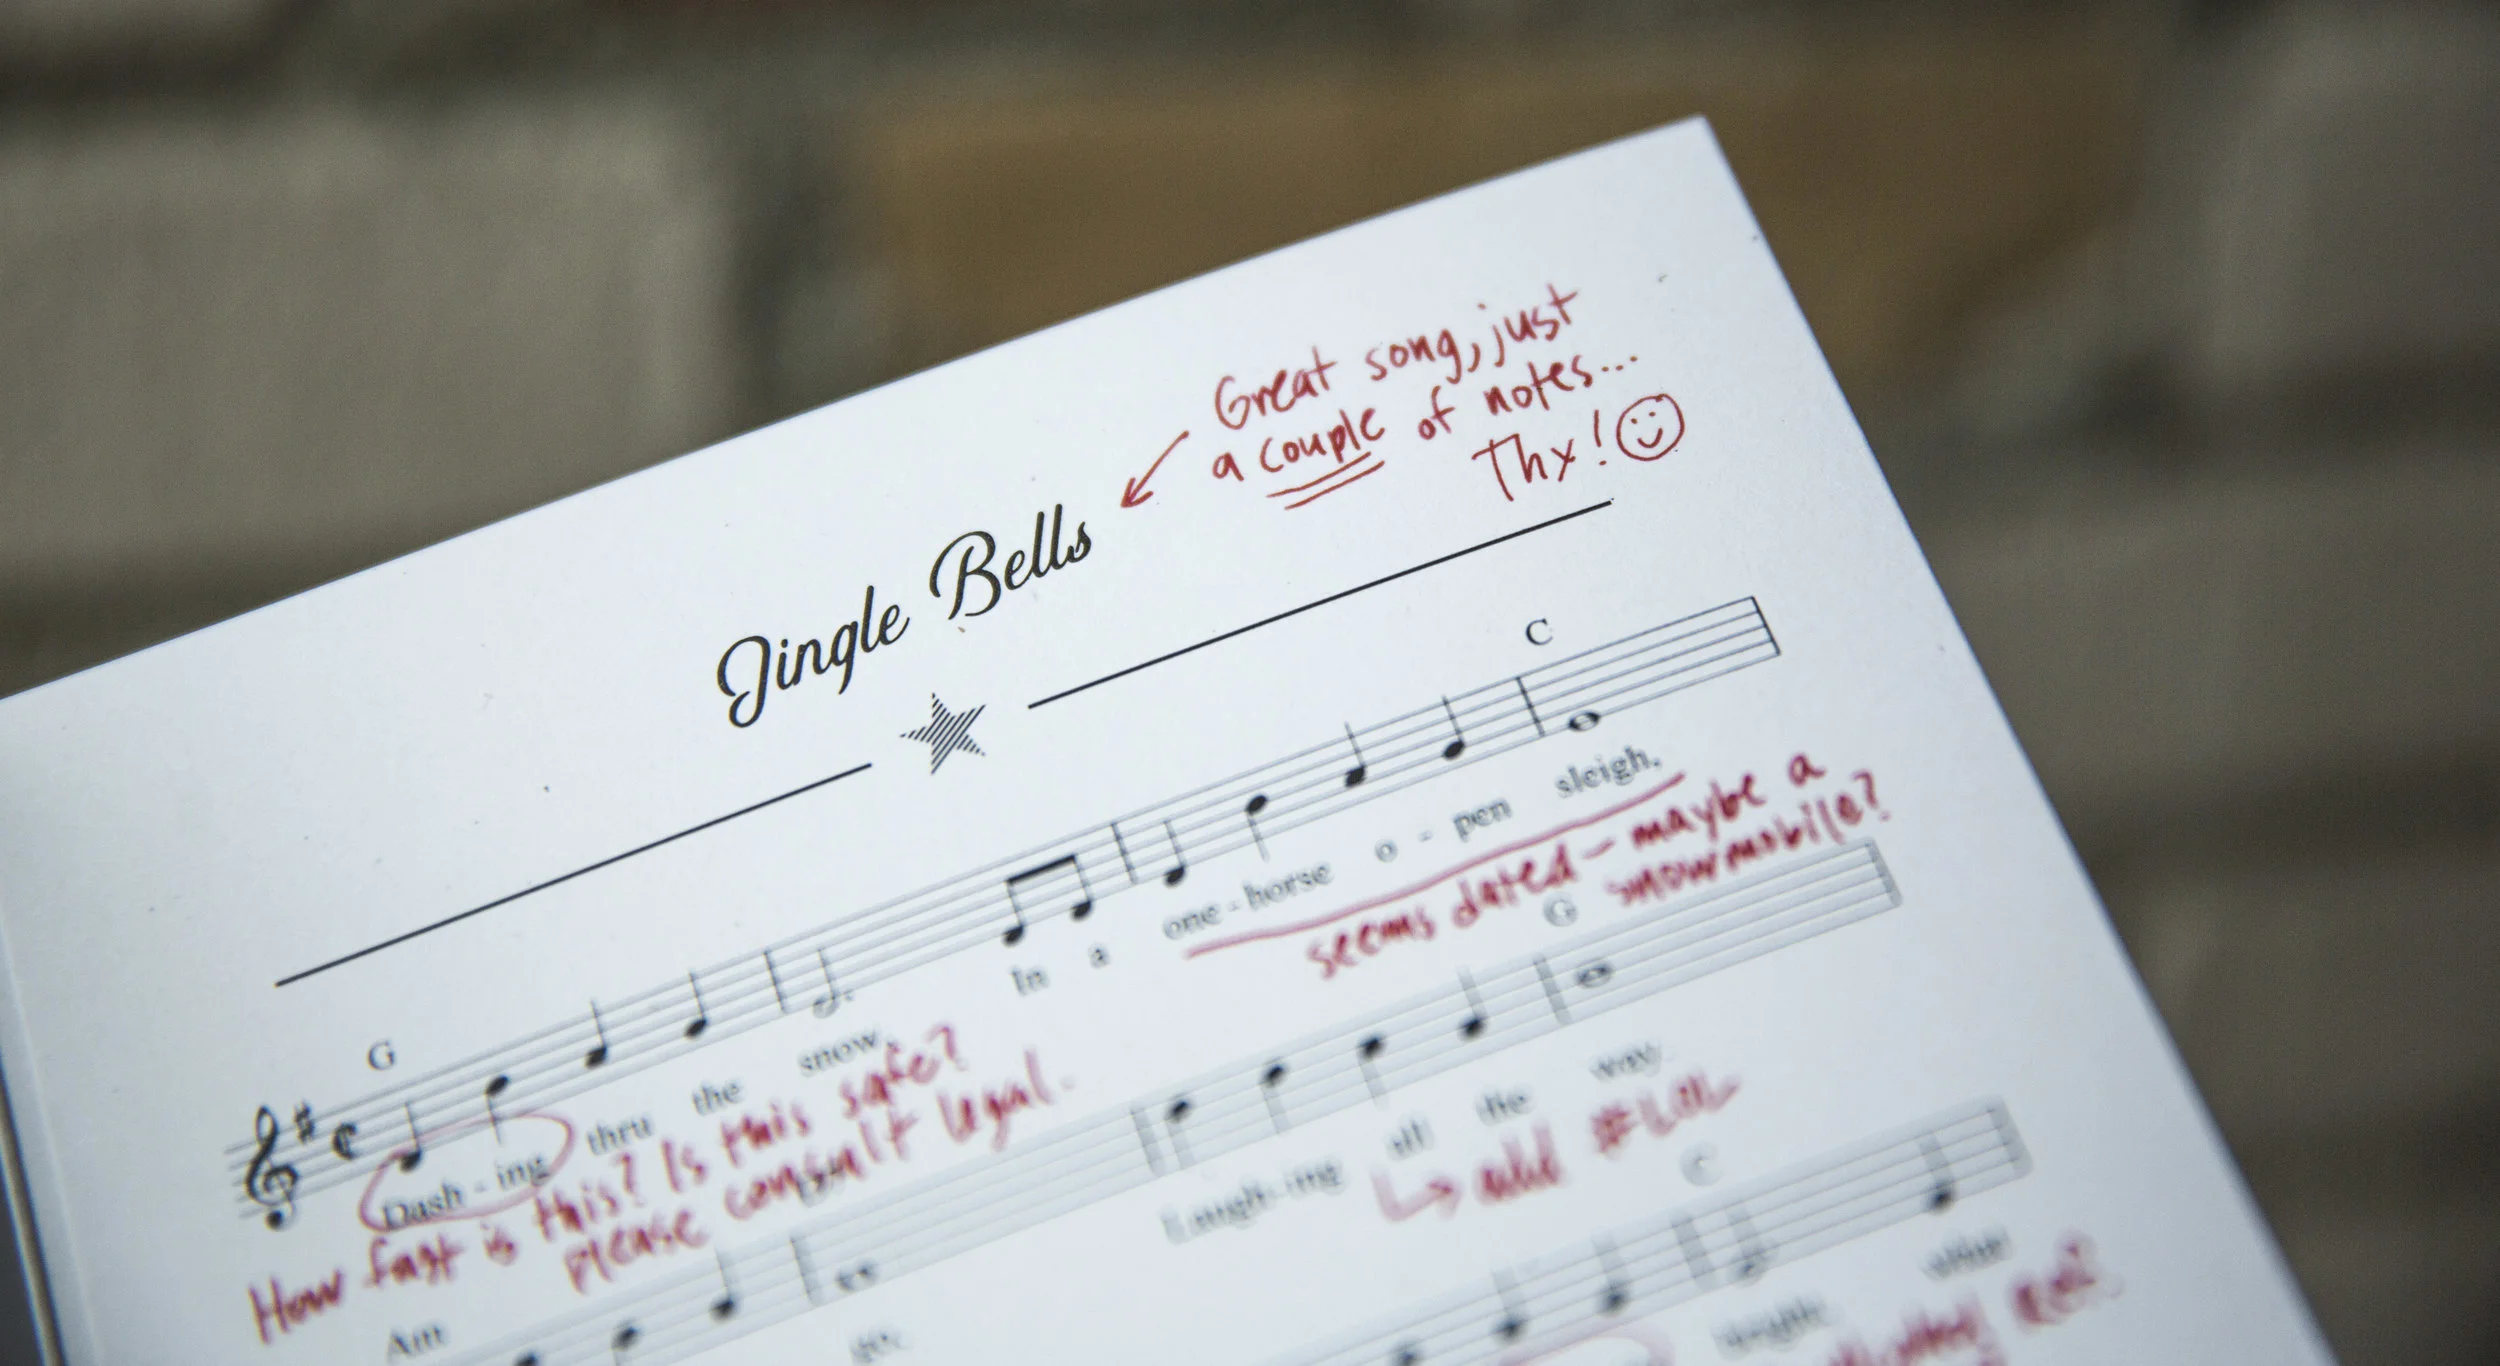 Great song, just
a couple of notes...
Thx!
Jingle Bells
C
G
Dash - ing thru the snow, In a one - horse o - pen sleigh,
seems dated - maybe a
snowmobile?
How fast is this? Is this safe?
please consult legal.
G
Laugh - ing all the way
add #LOL
C
Am